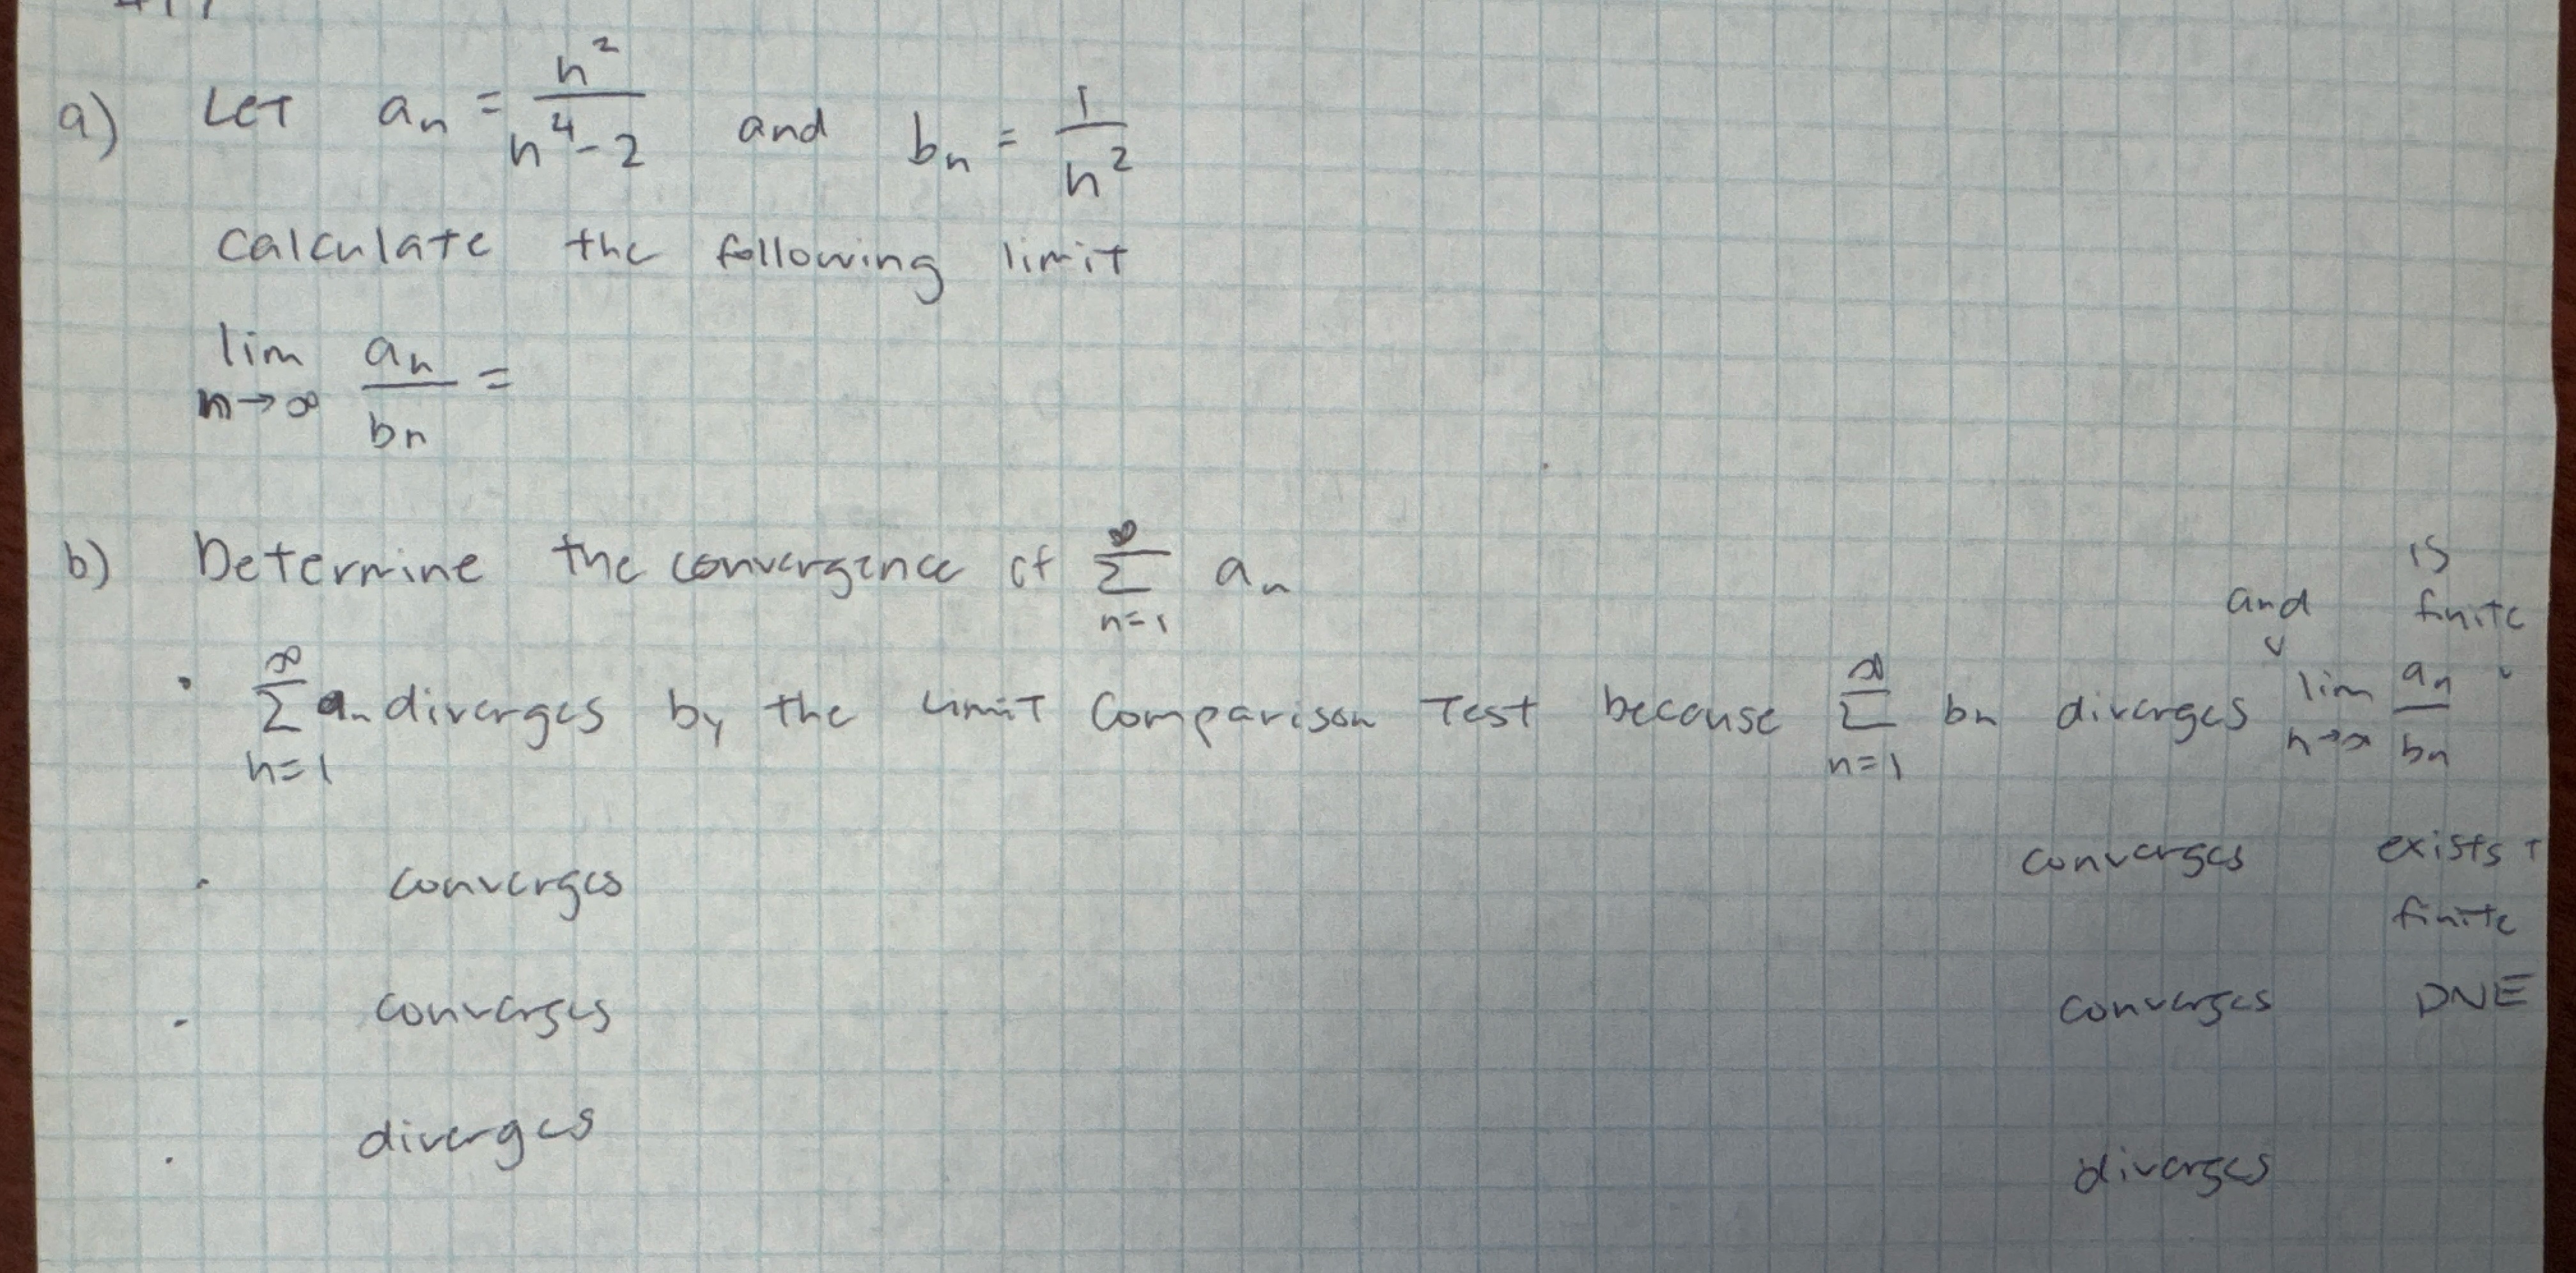 a) Let aₙ = n²/(n⁴-2) and bₙ = 1/n²
calculate the following limit
lim n→∞ aₙ/bₙ =
b) Determine the convergence of ∞ Σ n=1 aₙ
is
and finite
• ∞ Σ n=1 aₙ diverges by the Limit Comparison Test because ∞ Σ n=1 bₙ diverges lim n→∞ aₙ/bₙ
• converges converges exists +
finite
• converges converges DNE
• diverges diverges